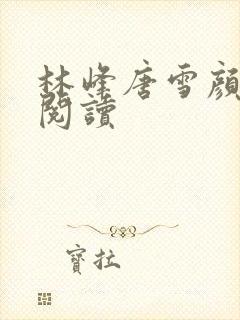 林峰唐雪顏
閱讀
寶拉